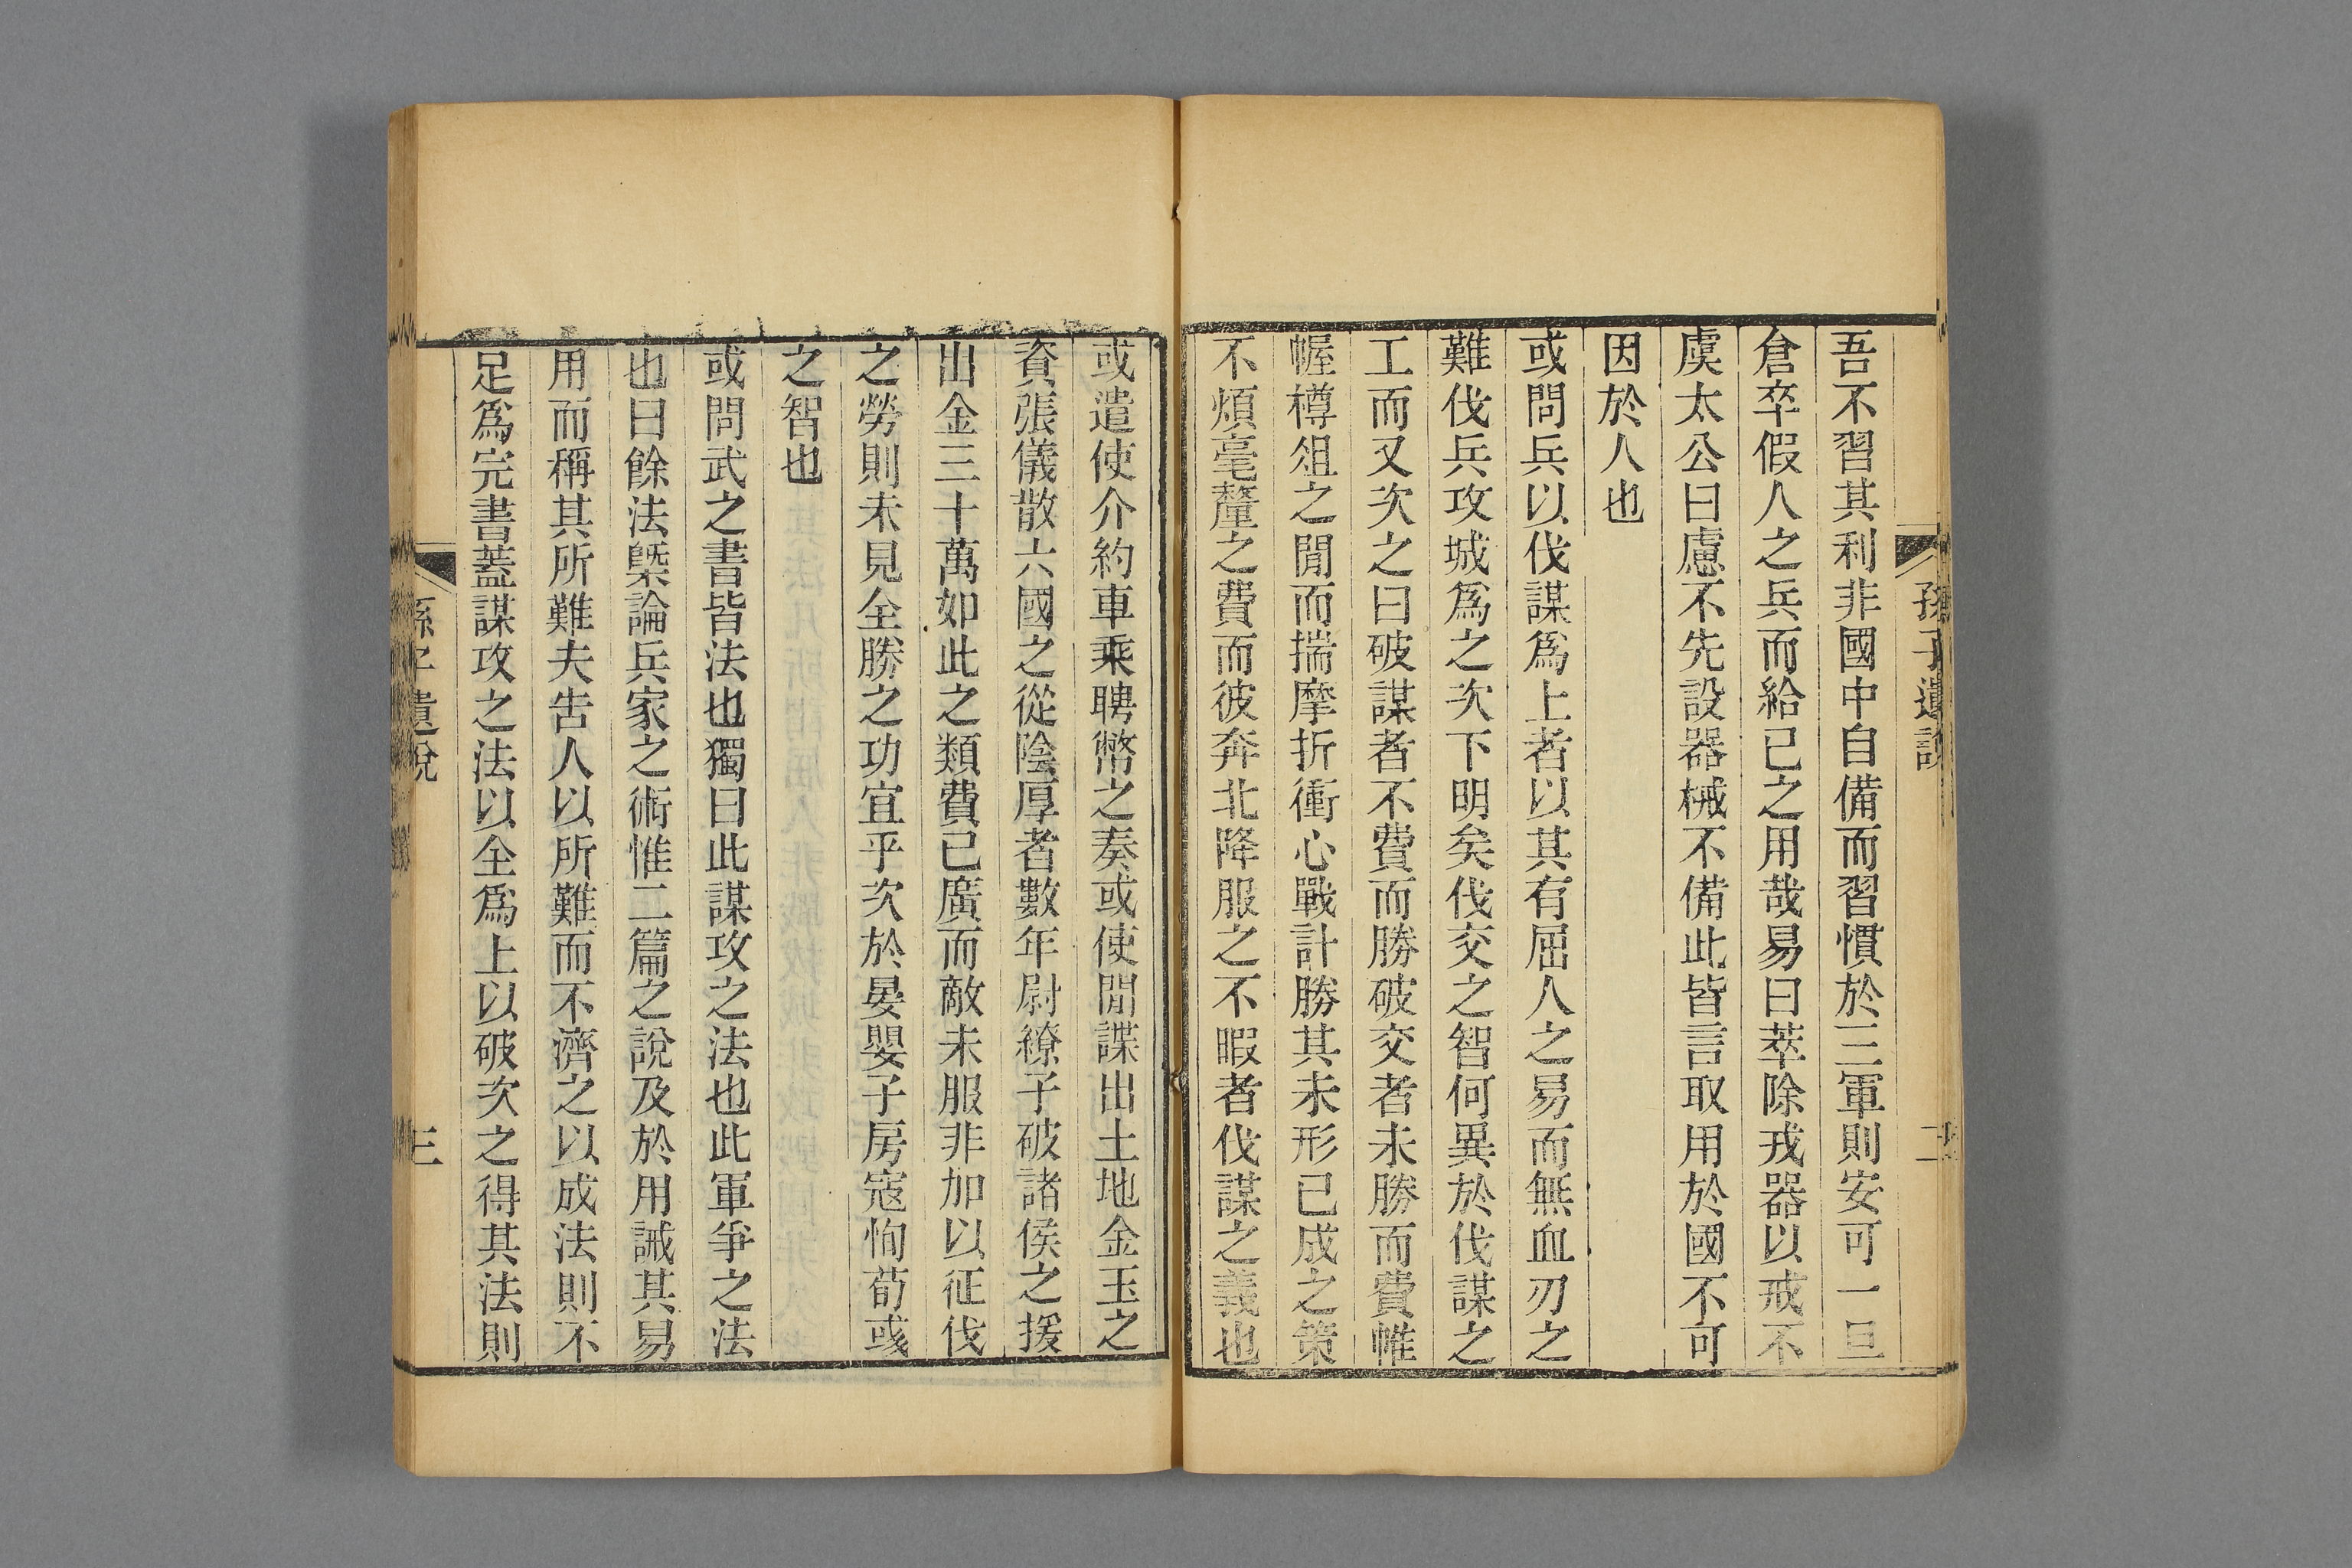 孫子遺說
二
吾不習其利非國中自備而習慣於三軍則安可一旦
倉卒假人之兵而給已之用哉易曰萃除戎器以戒不
虞太公曰慮不先設器械不備此皆言取用於國不可
因於人也
或問兵以伐謀爲上者以其有屈人之易而無血刃之
難伐兵攻城爲之次下明矣伐交之智何異於伐謀之
工而又次之曰破謀者不費而勝破交者未勝而費帷
幄樽俎之閒而揣摩折衝心戰計勝其未形已成之策
不煩毫釐之費而彼奔北降服之不暇者伐謀之義也
或遣使介約車乘聘幣之奏或使閒諜出土地金玉之
資張儀散六國之從陰厚者數年尉繚子破諸侯之援
出金三十萬如此之類費已廣而敵未服非加以征伐
之勞則未見全勝之功宜乎次於晏嬰子房寇恂荀彧
之智也
或問武之書皆法也獨曰此謀攻之法也此軍爭之法
也曰餘法槩論兵家之術惟二篇之說及於用誡其易
用而稱其所難夫告人以所難而不濟之以成法則不
足爲完書蓋謀攻之法以全爲上以破次之得其法則
孫子遺說
三